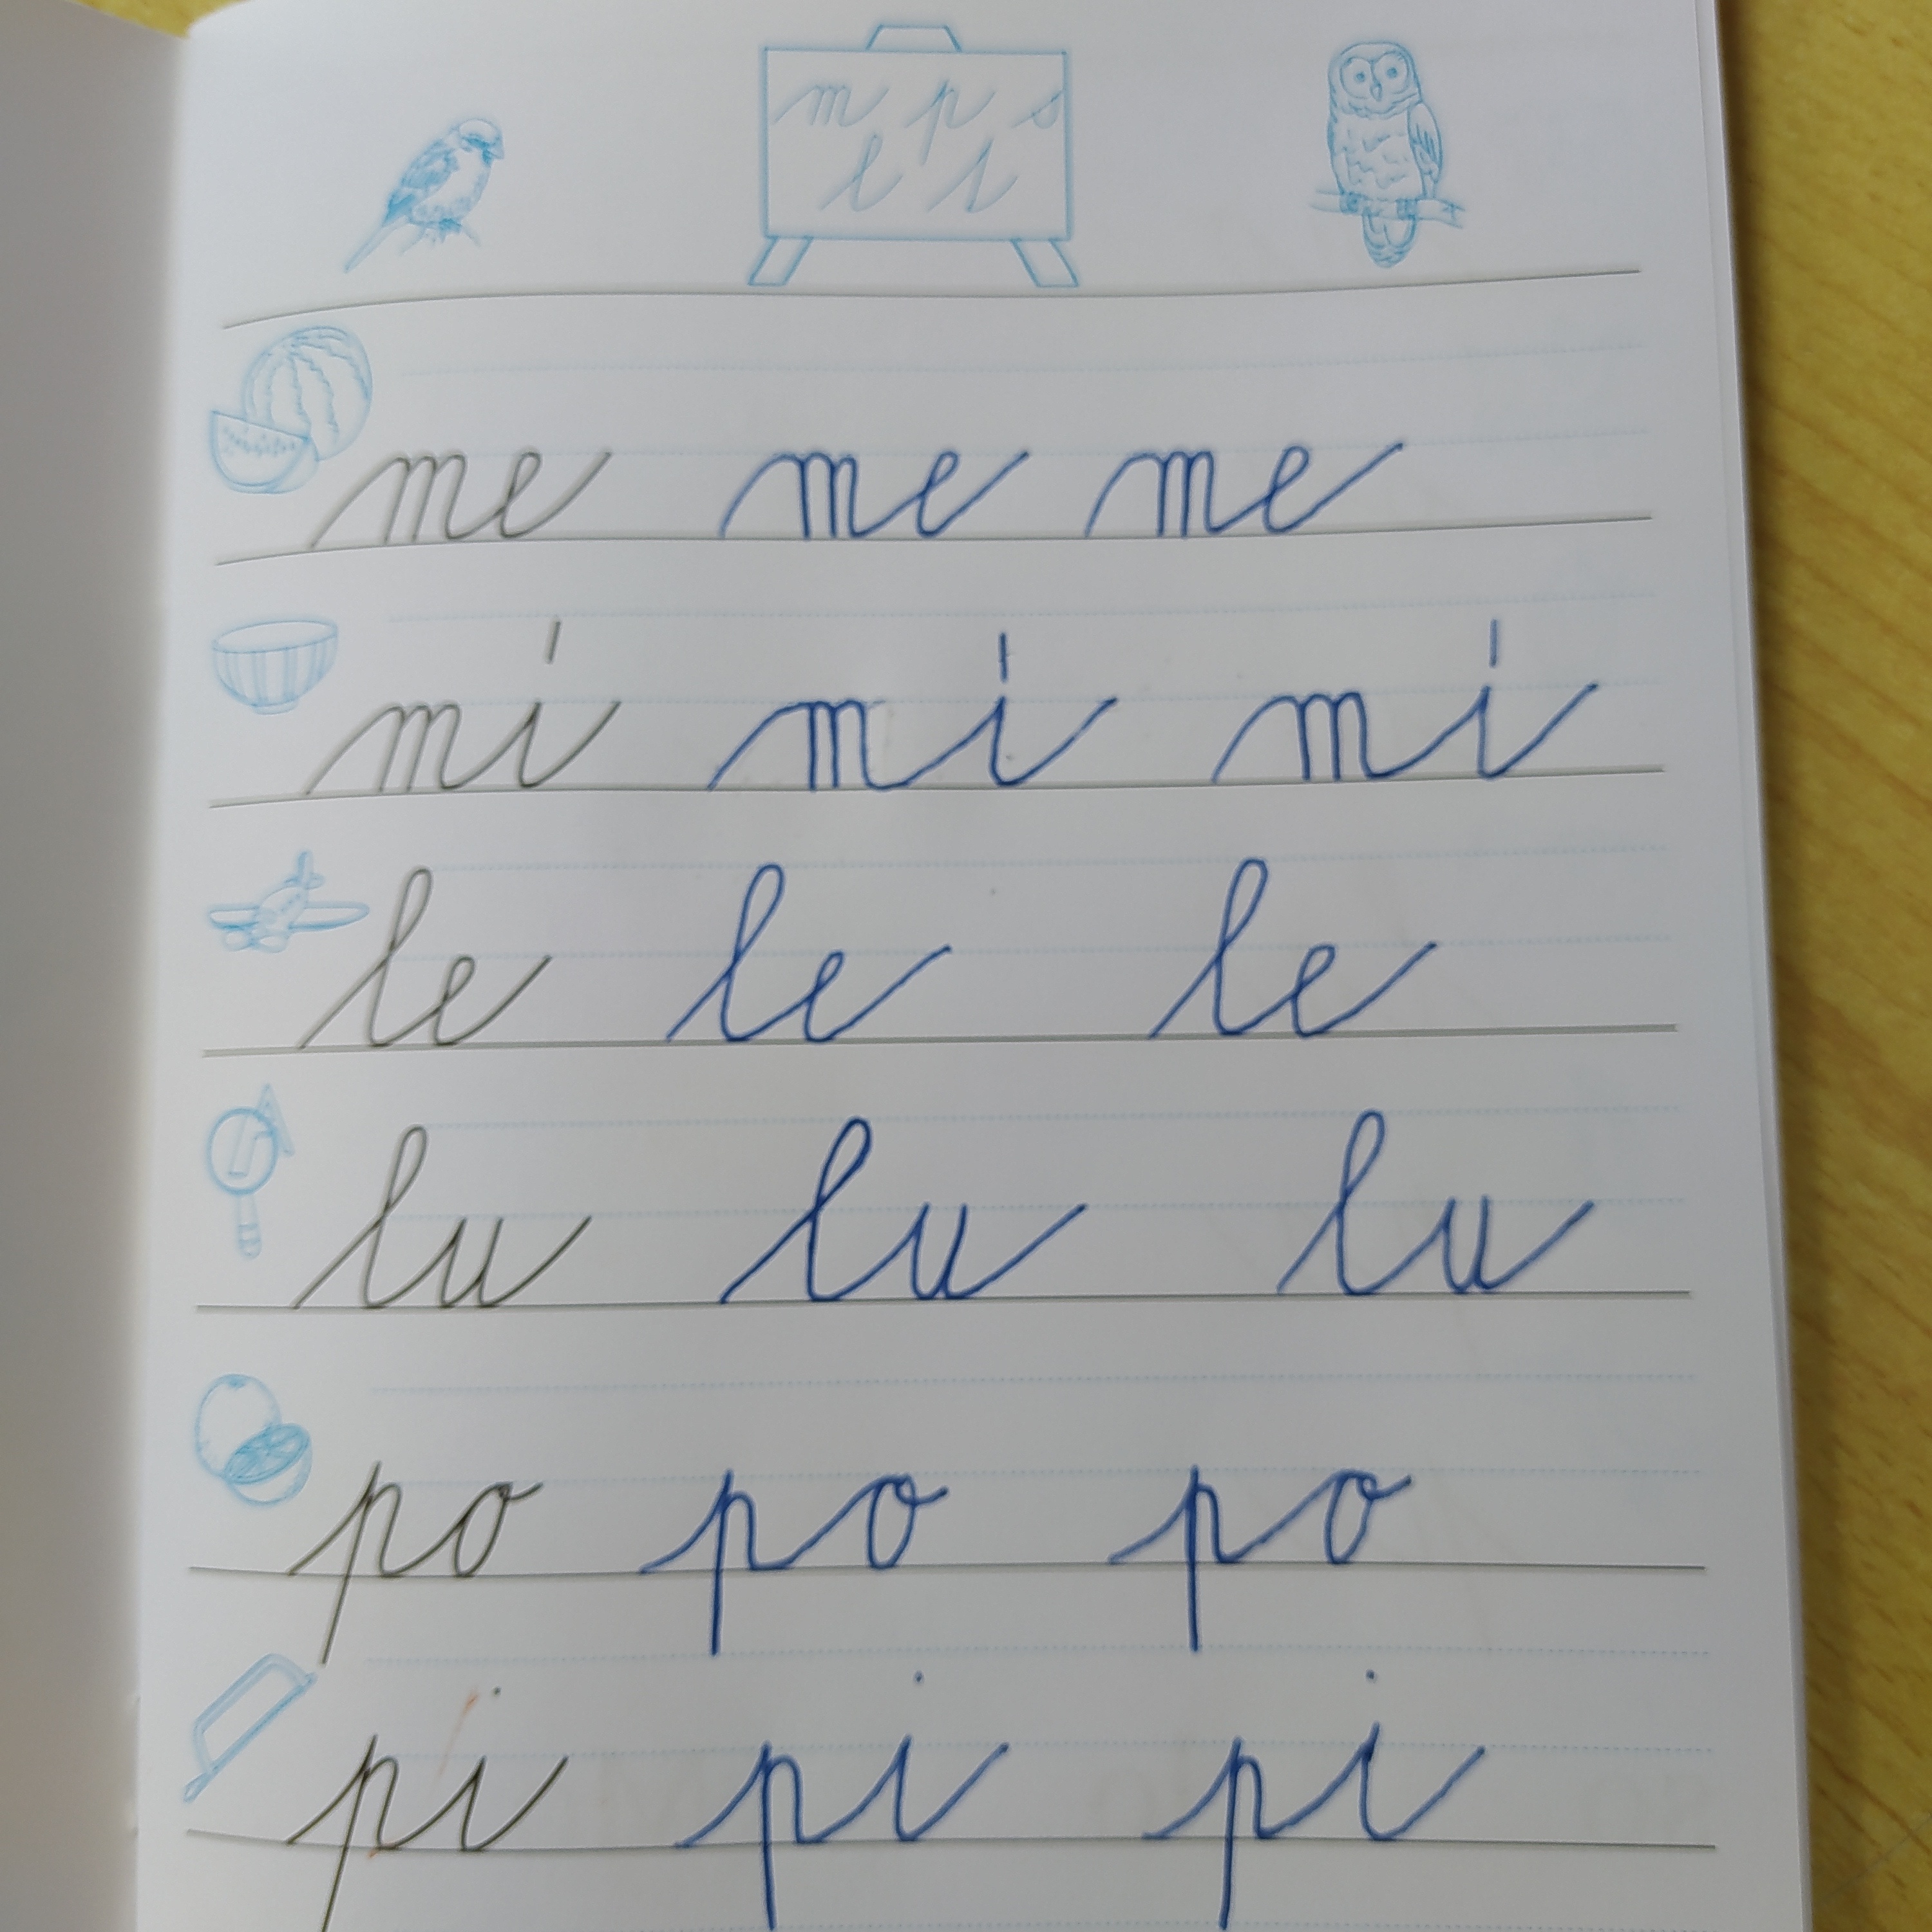 m p s
l t
me me me
mí mí mí
le le le
lu lu lu
po po po
pi pi pi